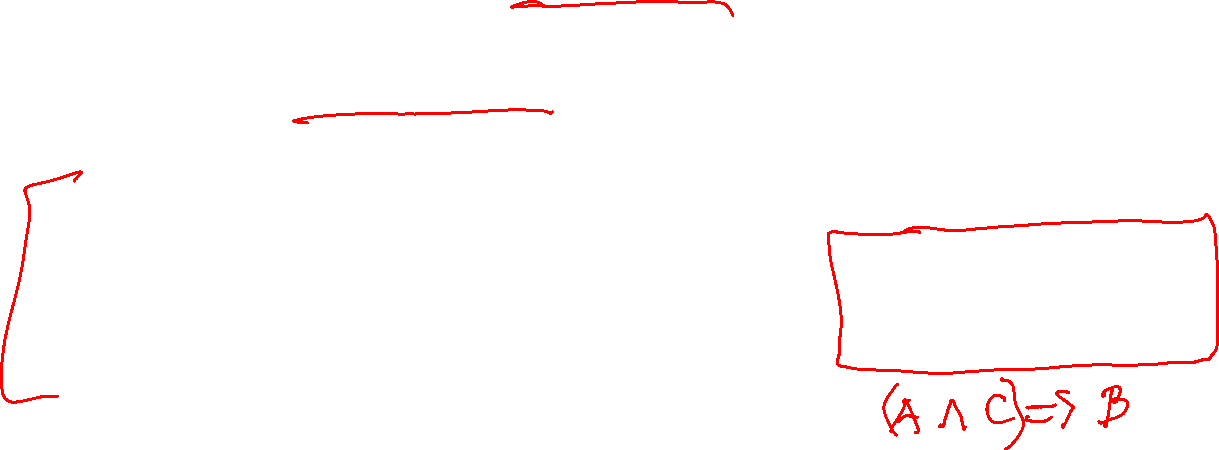 (A ∧ C) => B